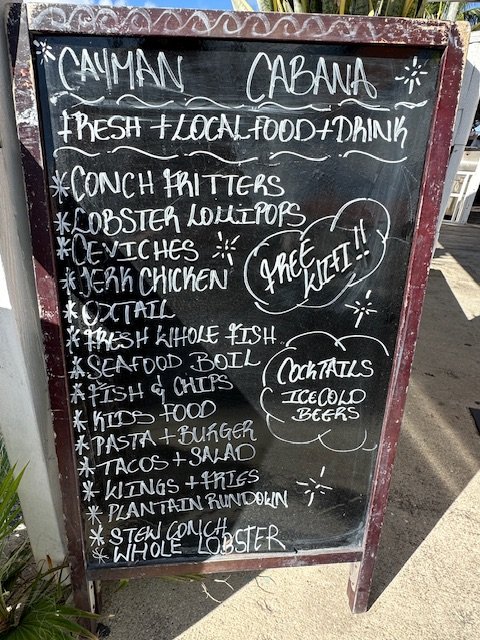 CAYMAN CABANA
FRESH + LOCAL FOOD + DRINK
* CONCH FRITTERS
* LOBSTER LOLLIPOPS
* CEVICHES
* JERK CHICKEN
* OXTAIL
* FRESH WHOLE FISH
* SEAFOOD BOIL
* FISH & CHIPS
* KIDS FOOD
* PASTA + BURGER
* TACOS + SALAD
* WINGS + FRIES
* PLANTAIN RUNDOWN
* STEW CONCH
* WHOLE LOBSTER
FREE
WIFI!!
COCKTAILS
ICE COLD
BEERS